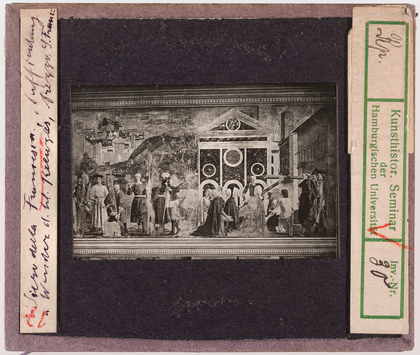 Piero della Francesca, Auffindung
u. Wunder d. hl. Kreuzes, Arezzo, S. Franc.
Rp.
Kunsthistor. Seminar
der
Hamburgischen Universität
Inv.-Nr.